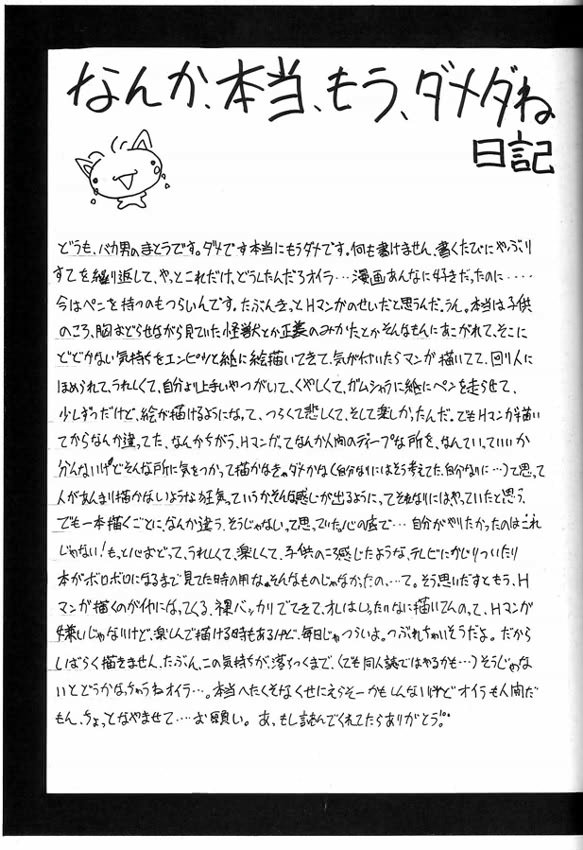 なんか、本当、もう、ダメダね
日記
どうも、バカ男のまとうです。ダメです本当にもうダメです。何も書けません、書くたびにやぶり
すてを繰り返して、やっとこれだけ、どうしたんだろオイラ…漫画あんなに好きだったのに‥‥
今はペンを持つのもつらいんです。たぶんきっとHマンガのせいだと思うんだ。うん。本当は子供
のころ、胸おどらせながら見ていた怪獣とか正義のみかたとかそんなもんにあこがれて、そこに
とどかない気持ちをエンピツと紙に絵描いてきて、気が付いたらマンガ描いてて、回り人に
ほめられて、うれしくて、自分より上手いやつがいて、くやしくて、ガムシャラに紙にペンを走らせて、
少しずつだけど、絵が描けるようになって、つらくて悲しくて、そして楽しかったんだ。でもHマンガ描い
てからなんか違ってた、なんかちがう、Hマンガってなんか人間のディープな所を、なんていっていいか
分んないけどそんな所に気をつかって描かなきゃダメかな(自分なりにはそう考えてた、自分なりに…)って思って
人があんまり描かないような狂気っていうか、そんな感じが出るようにってそれなりにはやっていたと思う、
でも一本描くごとに、なんか違う、そうじゃないって思っていた。心の底で…自分がやりたかったのはこれ
じゃない!もっと心おどって、うれしくて、楽しくて、子供のころ感じたような、テレビにかじりついたり
本がボロボロになるまで見てた時の用な。そんなものじゃなかったの…て。そう思いだすともう、H
マンガ描くのがイヤになってくる、裸バッカリでてきて、オレはいったいなに描いてんのって、Hマンガ
嫌いじゃないけど、楽しんで描ける時もあるけど、毎日じゃつらいよ。つぶれちゃいそうだよ。だから
しばらく描きません、たぶん、この気持ちが、落ちつくまで、(でも同人誌ではやるかも…)そうじゃな
いとどうかなっちゃうねオイラ…。本当へたくそなくせにえらそーかもしんないけどオイラも人間だ
もん、ちょっとなやませて…お願い。あ、もし読んでくれてたらありがとう。